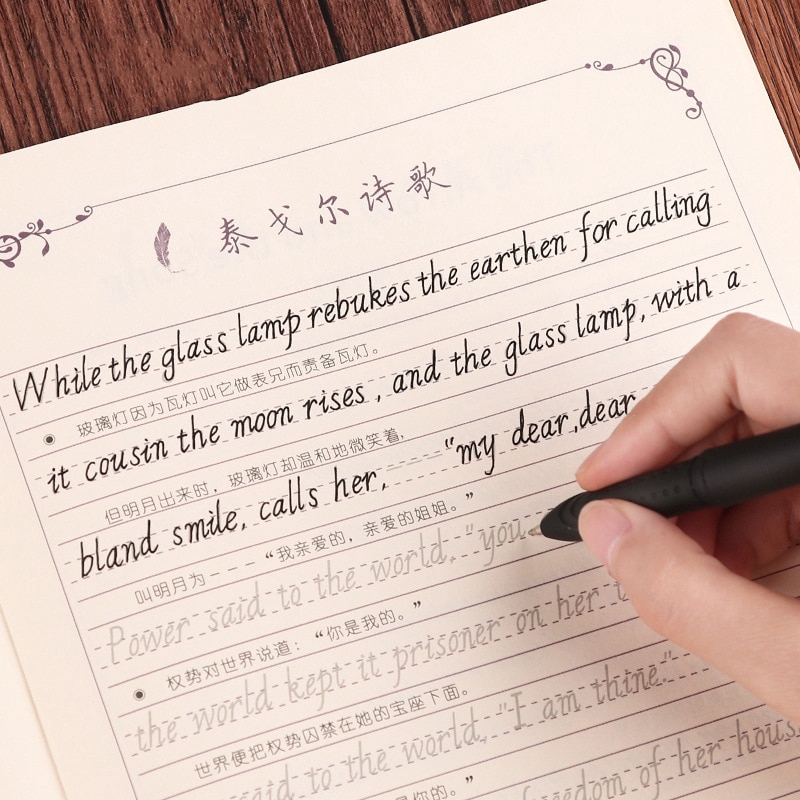 泰戈尔诗歌
While the glass lamp rebukes the earthen for calling
玻璃灯因为瓦灯叫它做表兄而责备瓦灯。
it cousin the moon rises, and the glass lamp, with a
但明月出来时，玻璃灯却温和地微笑着,
bland smile, calls her,----“my dear,dear
叫明月为---“我亲爱的，亲爱的姐姐。”
Power said to the world, “you
权势对世界说道：“你是我的。”
the world kept it prisoner on her
世界便把权势囚禁在她的宝座下面。
said to the world, “I am thine.”
你的。”
freedom of her